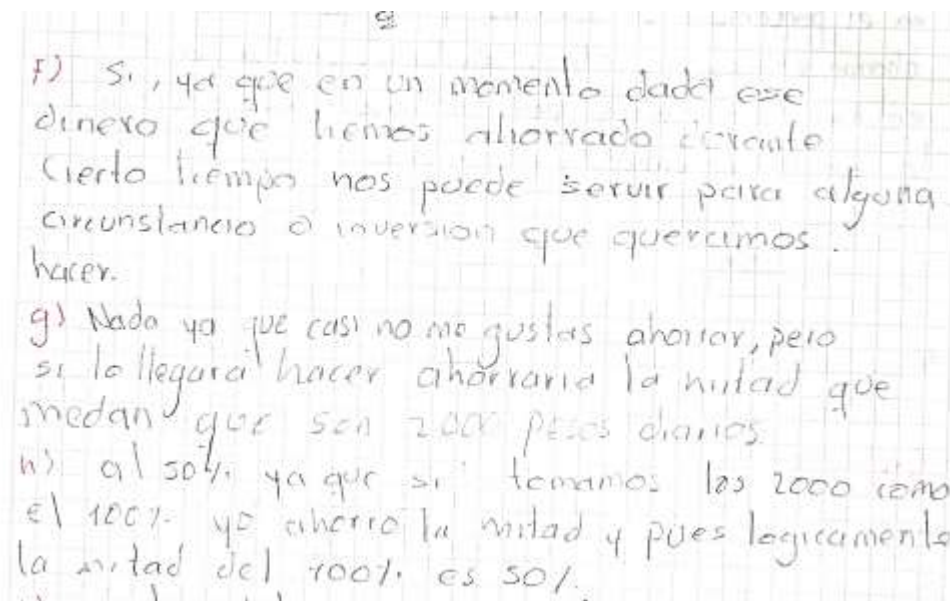 f) Si, ya que en un momento dado ese
dinero que hemos ahorrado durante
Cierto tiempo nos puede servir para alguna
circunstancia o inversion que queramos.
hacer.
g) Nada ya que casi no me gustas ahorrar, pero
si lo llegara hacer ahorraria la mitad que
medan que son 2000 pesos diarios
h) al 50% ya que si tomamos los 2000 como
el 100% yo ahorro la mitad y pues logicamente
la mitad del 100% es 50%